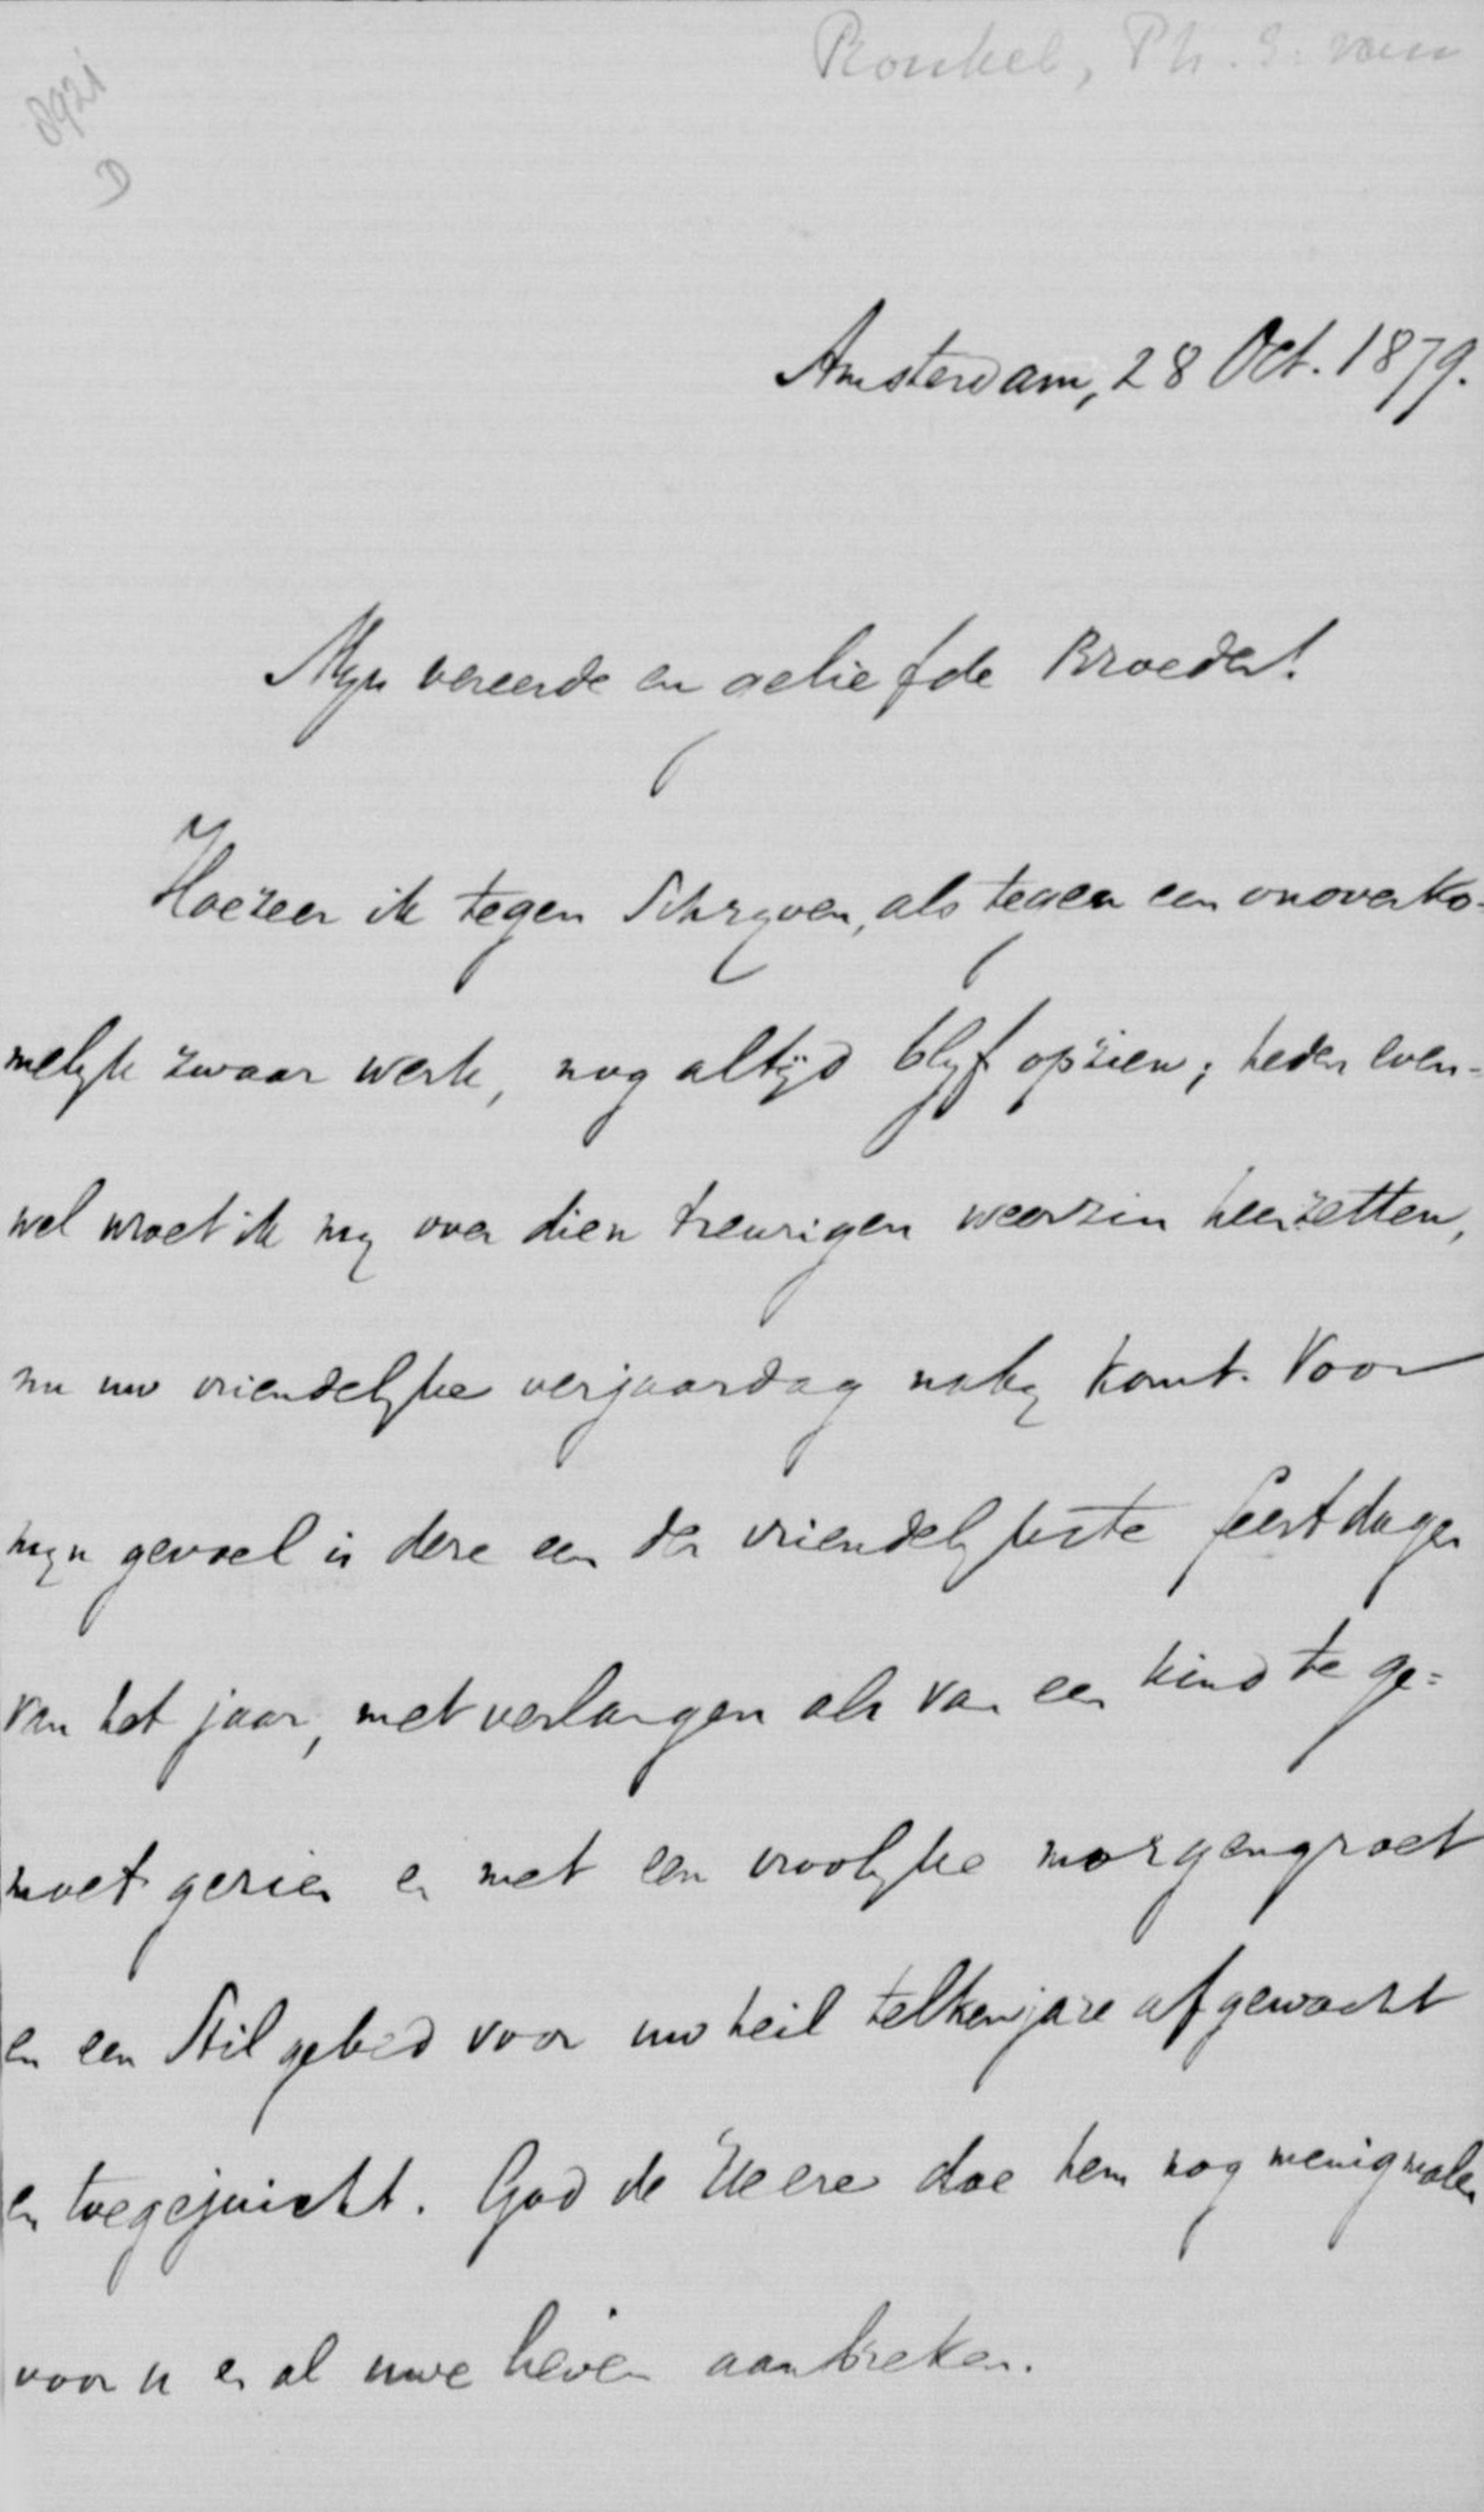 Ronkel, Ph. S. van
892i
D
Amsterdam, 28 Oct. 1879.
Mijn vereerde en geliefde Broeder!
Hoezeer ik tegen schrijven, als tegen een onoverko=
melijk zwaar werk, nog altijd blijf opzien; heden even=
wel moet ik mij over dien treurigen weerzin heenzetten,
nu uw vriendelijke verjaardag nabij komt. Voor
mijn gevoel is deze een der vriendelijkste feestdagen
van het jaar, met verlangen als van een kind te ge=
moet gezien en met een vroolijke morgengroet
en een stil gebed voor uw heil telkenjare afgewacht
en toegejuicht. God de Heere doe hem nog menigmalen
voor u en al uwe lieven aanbreken.